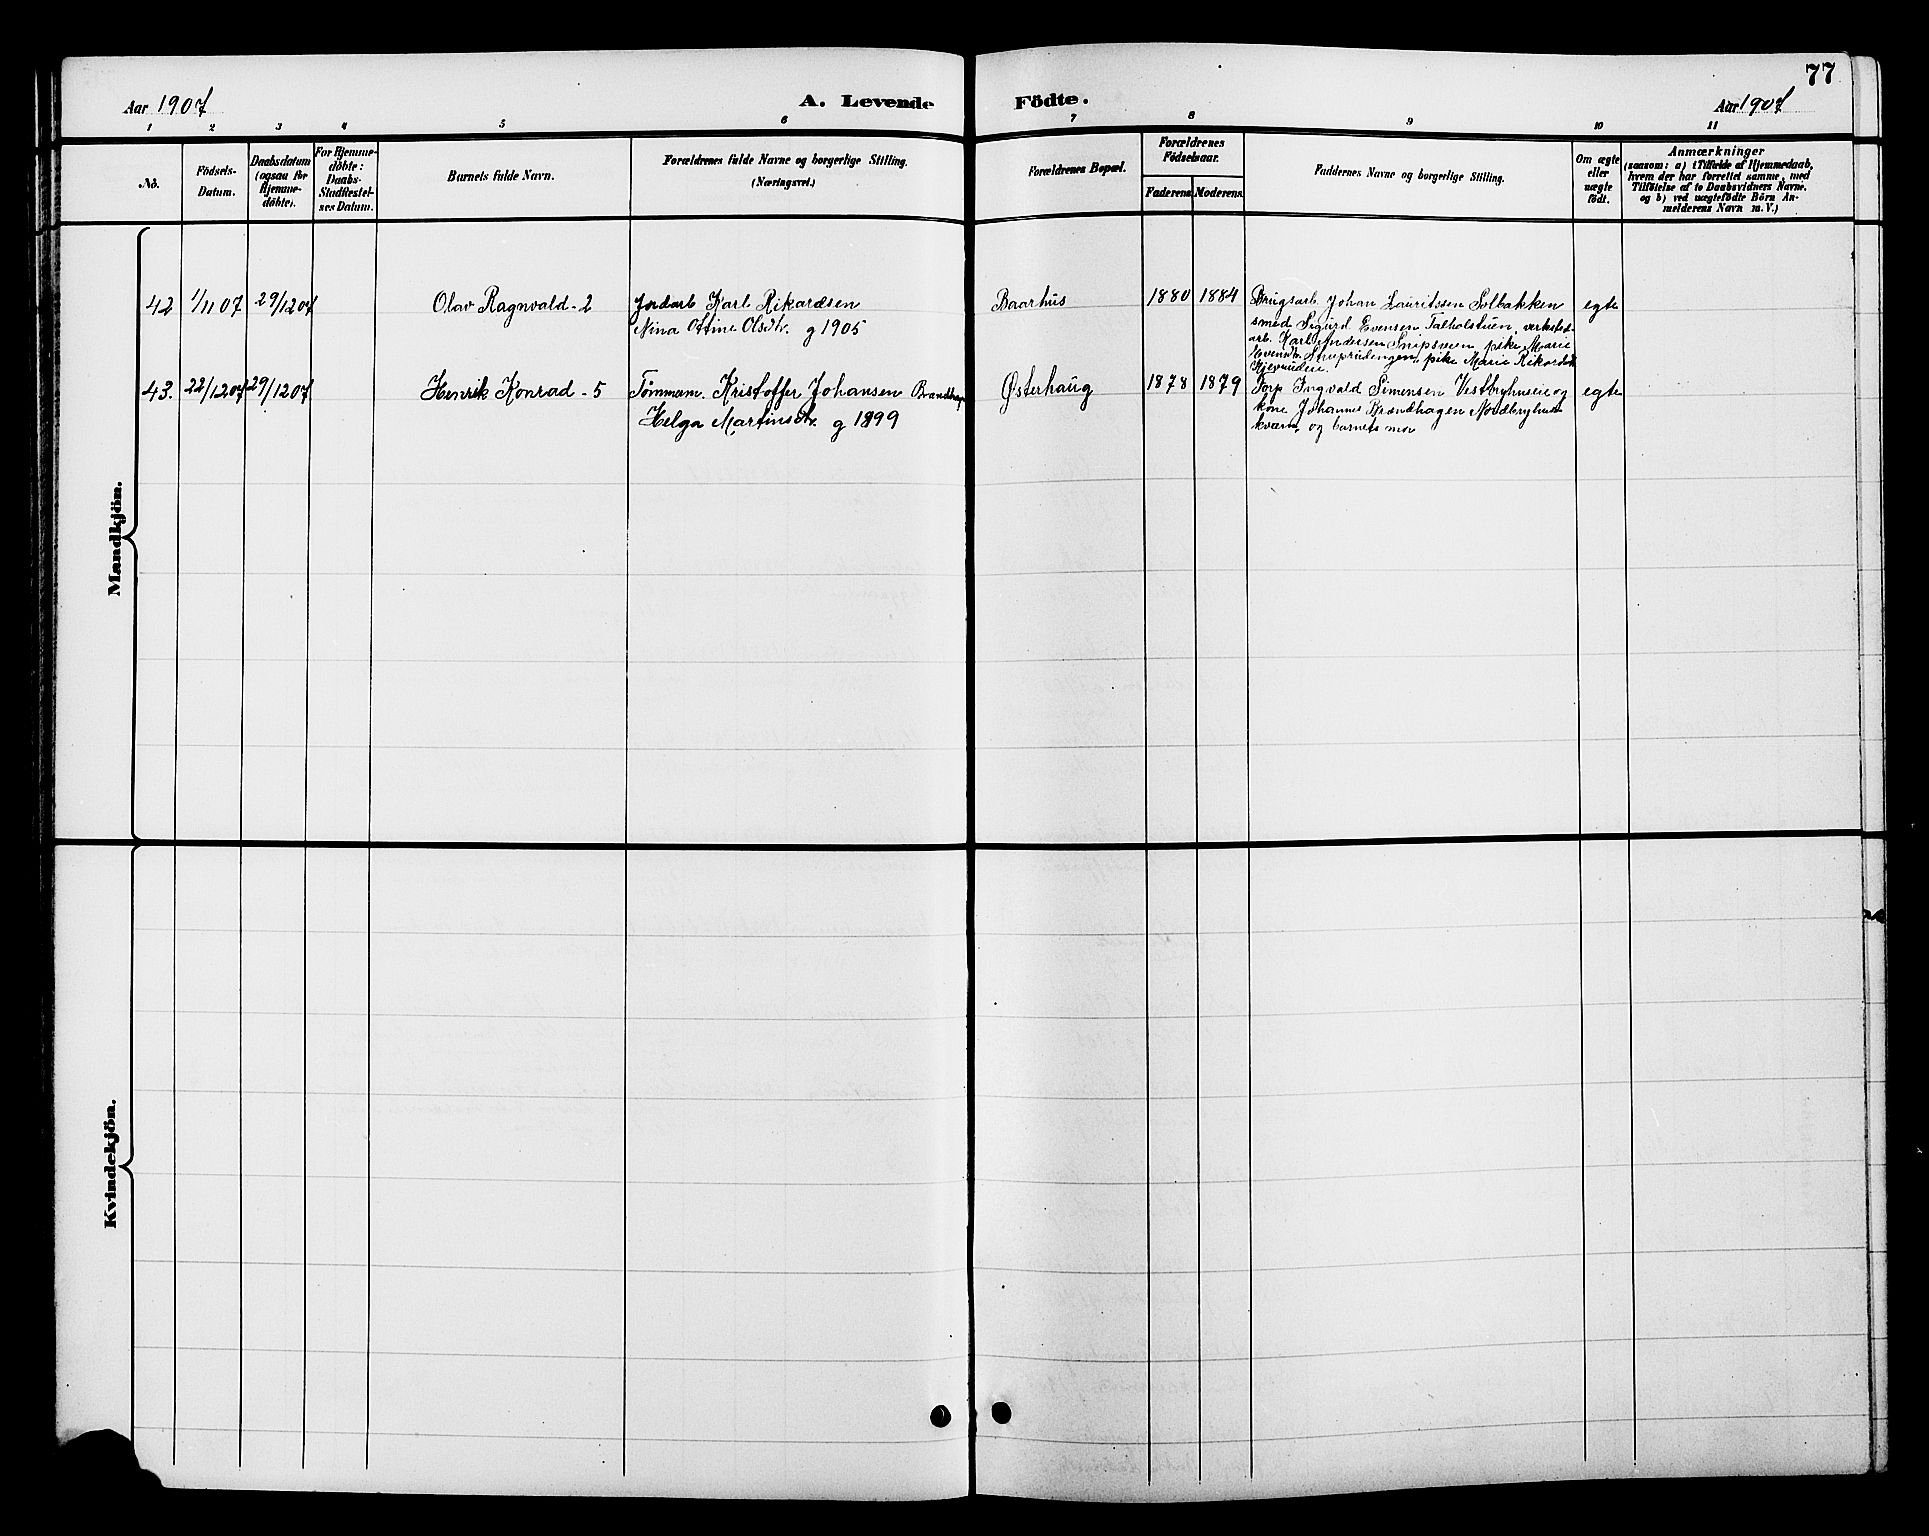 77
Aar 1907
A. Levende
Födte.
Aar 1907
1 2 3 4 5 6 7 8 9 10 11
No.
Födsels-
Datum.
Daabsdatum
(ogsaa for
Hjemme-
döbte).
For Hjemme-
döbte:
Daabs-
Stadfæstel-
ses Datum.
Barnets fulde Navn.
Forældrenes fulde Navne og borgerlige Stilling.
(Næringsvei.)
Forældrenes Bopæl.
Forældrenes
Födselsaar.
Faderens. Moderens.
Faddernes Navne og borgerlige Stilling.
Om ægte
eller
uægte
født.
Anmærkninger
(saasom: a) i Tilfælde af Hjemmedaab,
hvem der har forrettet samme, med
Tilföielse af to Daabsvidners Navne.
og b) ved uægtefödte Börn An-
melderens Navn m. V.)
Mandkjön.
42 1/11 07 29/12 07 Olav Ragnvald - 2
Jordarb Karl Rikardsen
Nina Ottine Olsdtr. g 1905
Baarhus 1880 1884
Brugsarb. Johan Lauritssen Solbakken
smed Sigurd Evensen Talholstuen, verksted-
arb. Karl Andersen Snipsveien pike Marie
Evensdtr. pike Marie Rikardsdtr
egte
43. 22/12 07 29/12 07 Henrik Konrad - 5
Tømmerm. Kristoffer Johansen
Helga Martinsdtr. g 1899
Østerhaug 1878 1879
Torp Ingvald Simensen Vestbyhuseie og
kone Johanne Brændhagen
kværn, og barnets mor
egte
Kvindekjön.